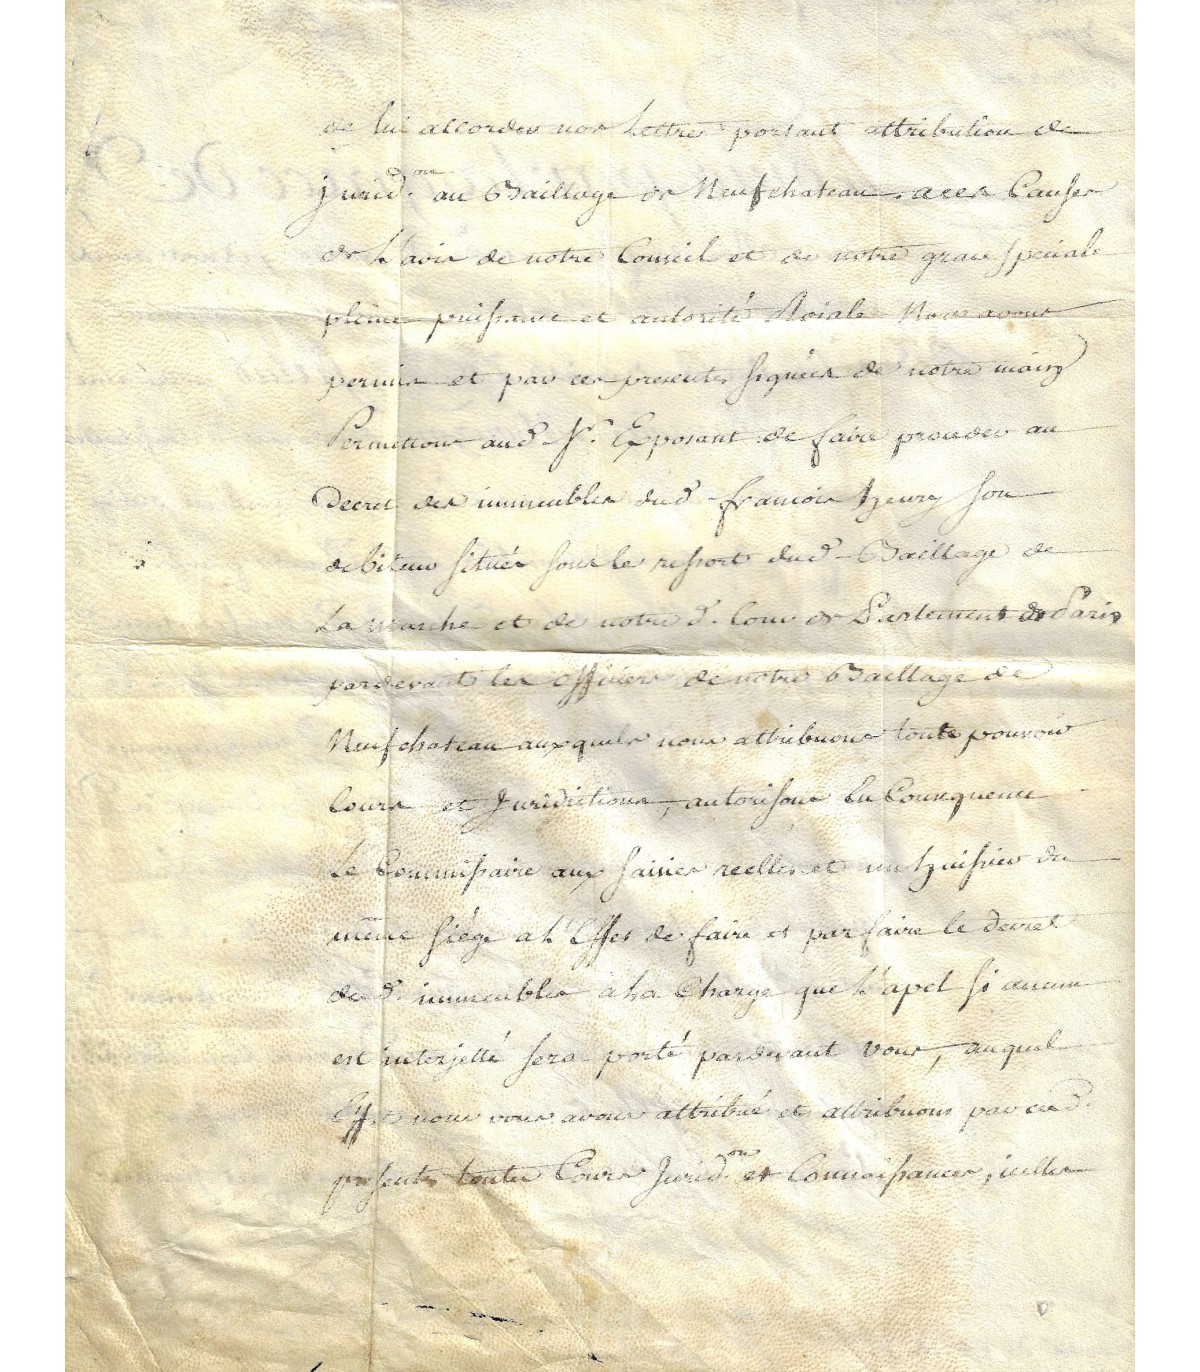 de lui accorder nos Lettres portant attribution de
jurid.on au Baillage de Neufchateau, a ces Causes
de L'avis de notre Conseil et de notre grace speciale
pleine puissance et autorité Roiale Nous avons
permis et par ces presentes signées de notre main
Permettons aud. Sr. Exposant de faire proceder au
Decret des immeubles dud. francois henry son
debiteur situés sous le ressort dud. Baillage de
La marche et de notre d. Cour de Parlement de Paris
pardevant les officiers de notre Baillage de
Neufchateau auxquels nous attribuons toute pouvoir
Cours et Juridictions, autorisons En Consequence
Le Commissaire aux saisies reelles et un huissier du
même siége a L'Effet de faire et parfaire le decret
desd. immeubles à La Charge que L'apel si aucun
est interjetté sera porté pardevant Vous, auquel
Effet nous vous avons attribué et attribuons par cesd.
presentes toutes Cours Jurid.on et Connoissances, icelles